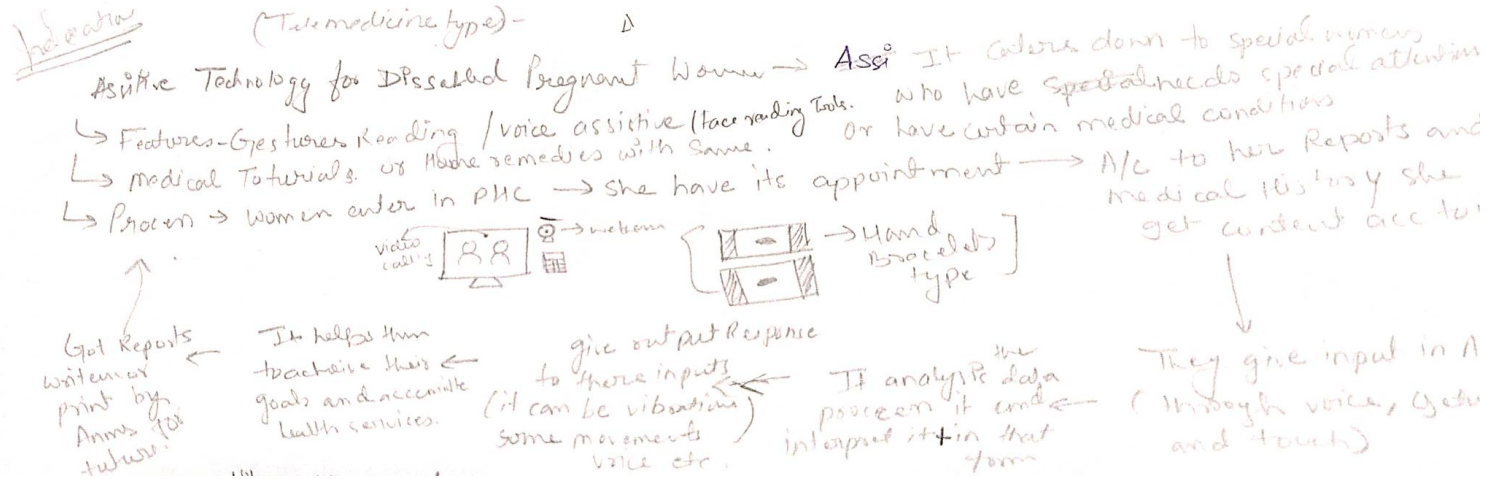 (Telemedicine type) -
Asistive Technology for Dissabled Pregnant Women → Assi It caters down to special women
who have special needs special attention
or have certain medical conditions
↳ Features - Gestures Reading / voice assistive / face reading Tools.
↳ Medical Toturials or Home remedies with same.
↳ Process → women enter in PHC → she have its appointment → A/C to her Reports and
medical History she
get content acc to
video
calling
→ webcam
→ Hand
Bracelets
type
They give input in A
(through voice,
and touch)
It analysis the data
process it and
interpret it in that
form
give output Response
to these inputs
(it can be vibrations)
some movements
voice etc.
It helps them
to acheive their
goals and accessible
health services.
Got Reports
written or
print by
Anms for
future.